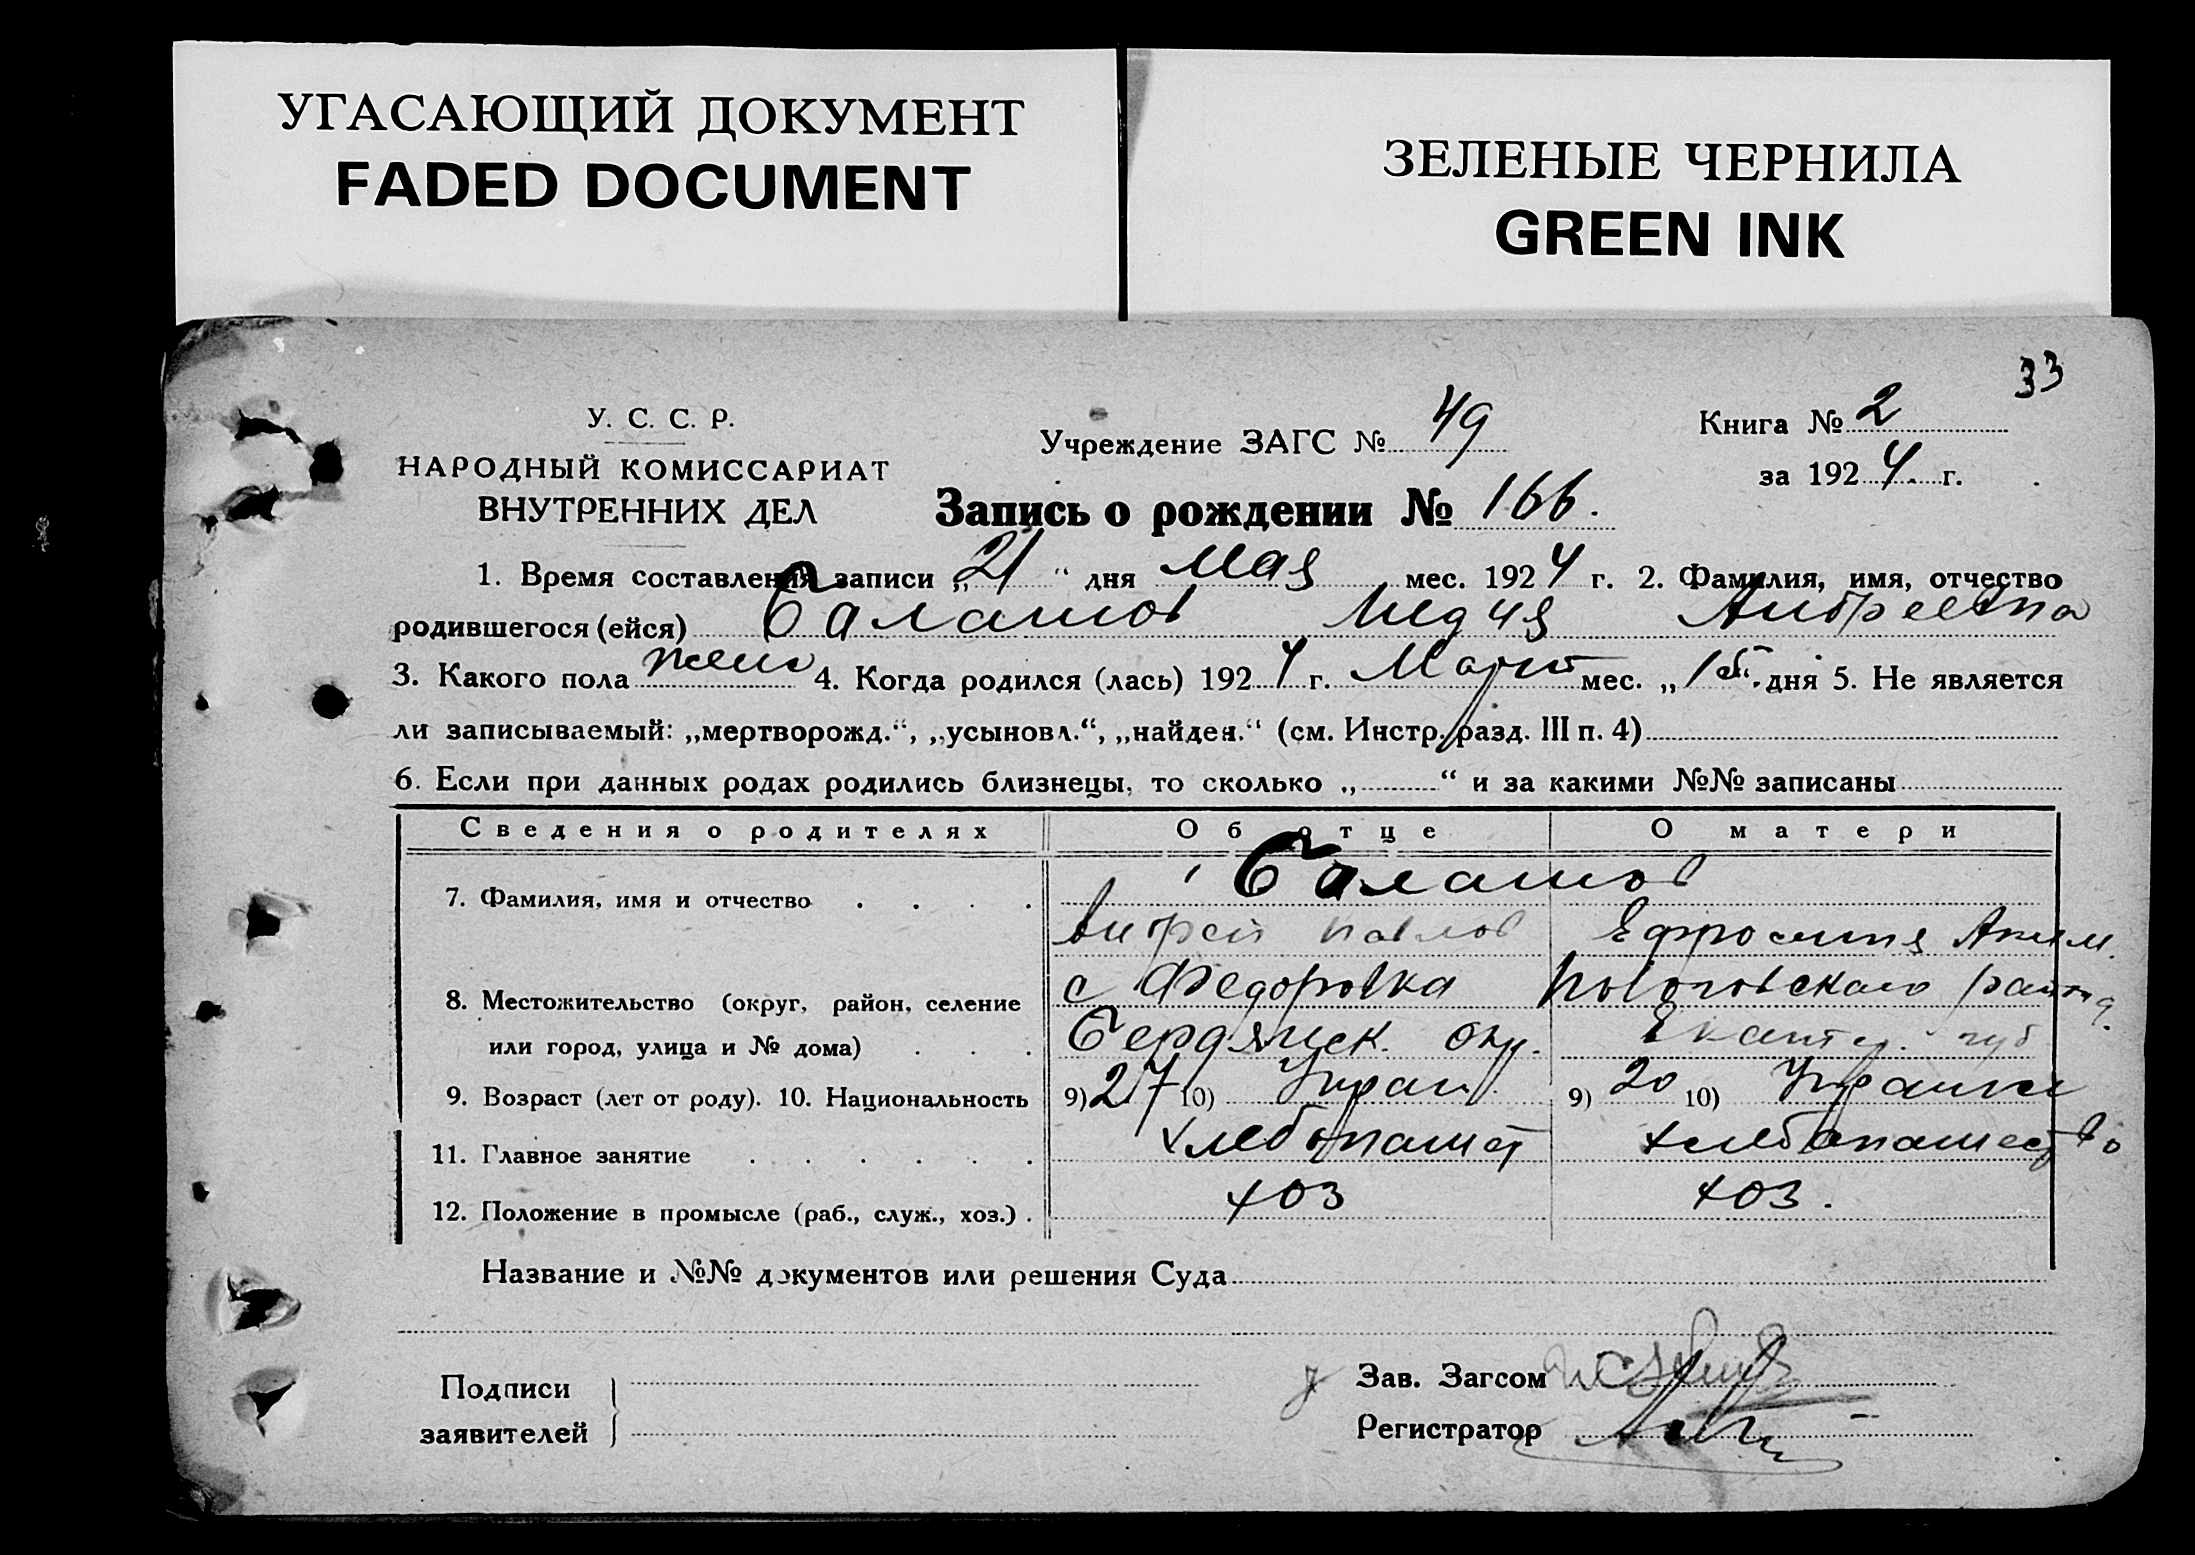 УГАСАЮЩИЙ ДОКУМЕНТ
FADED DOCUMENT
ЗЕЛЕНЫЕ ЧЕРНИЛА
GREEN INK
33
У. С. С. Р.
НАРОДНЫЙ КОМИССАРИАТ
ВНУТРЕННИХ ДЕЛ
Учреждение ЗАГС № 49
Книга № 2
за 1924 г.
Запись о рождении № 166.
1. Время составления записи „21“ дня Мая мес. 1924 г. 2. Фамилия, имя, отчество
родившегося (ейся) Балашов Андреевна
3. Какого пола жен 4. Когда родился (лась) 1924 г. Март мес. „15“ дня 5. Не является
ли записываемый: „мертворожд.“, „усыновл.“, „найден.“ (см. Инстр. разд. III п. 4)
6. Если при данных родах родились близнецы, то сколько „ “ и за какими №№ записаны
Сведения о родителях Об отце О матери
7. Фамилия, имя и отчество . . . . Балашов
Андрей Павлов Ефросиния Аким.
8. Местожительство (округ, район, селение с Федоровка Пологовского района
или город, улица и № дома) . . . Бердянск. окр. Екатер. губ
9. Возраст (лет от роду). 10. Национальность 9) 27 10) Украин. 9) 20 10) Украинк
11. Главное занятие . . . . . . хлебопашест хлебопашество
12. Положение в промысле (раб., служ., хоз.) . хоз хоз.
Название и №№ документов или решения Суда
Подписи
заявителей
Зав. Загсом
Регистратор